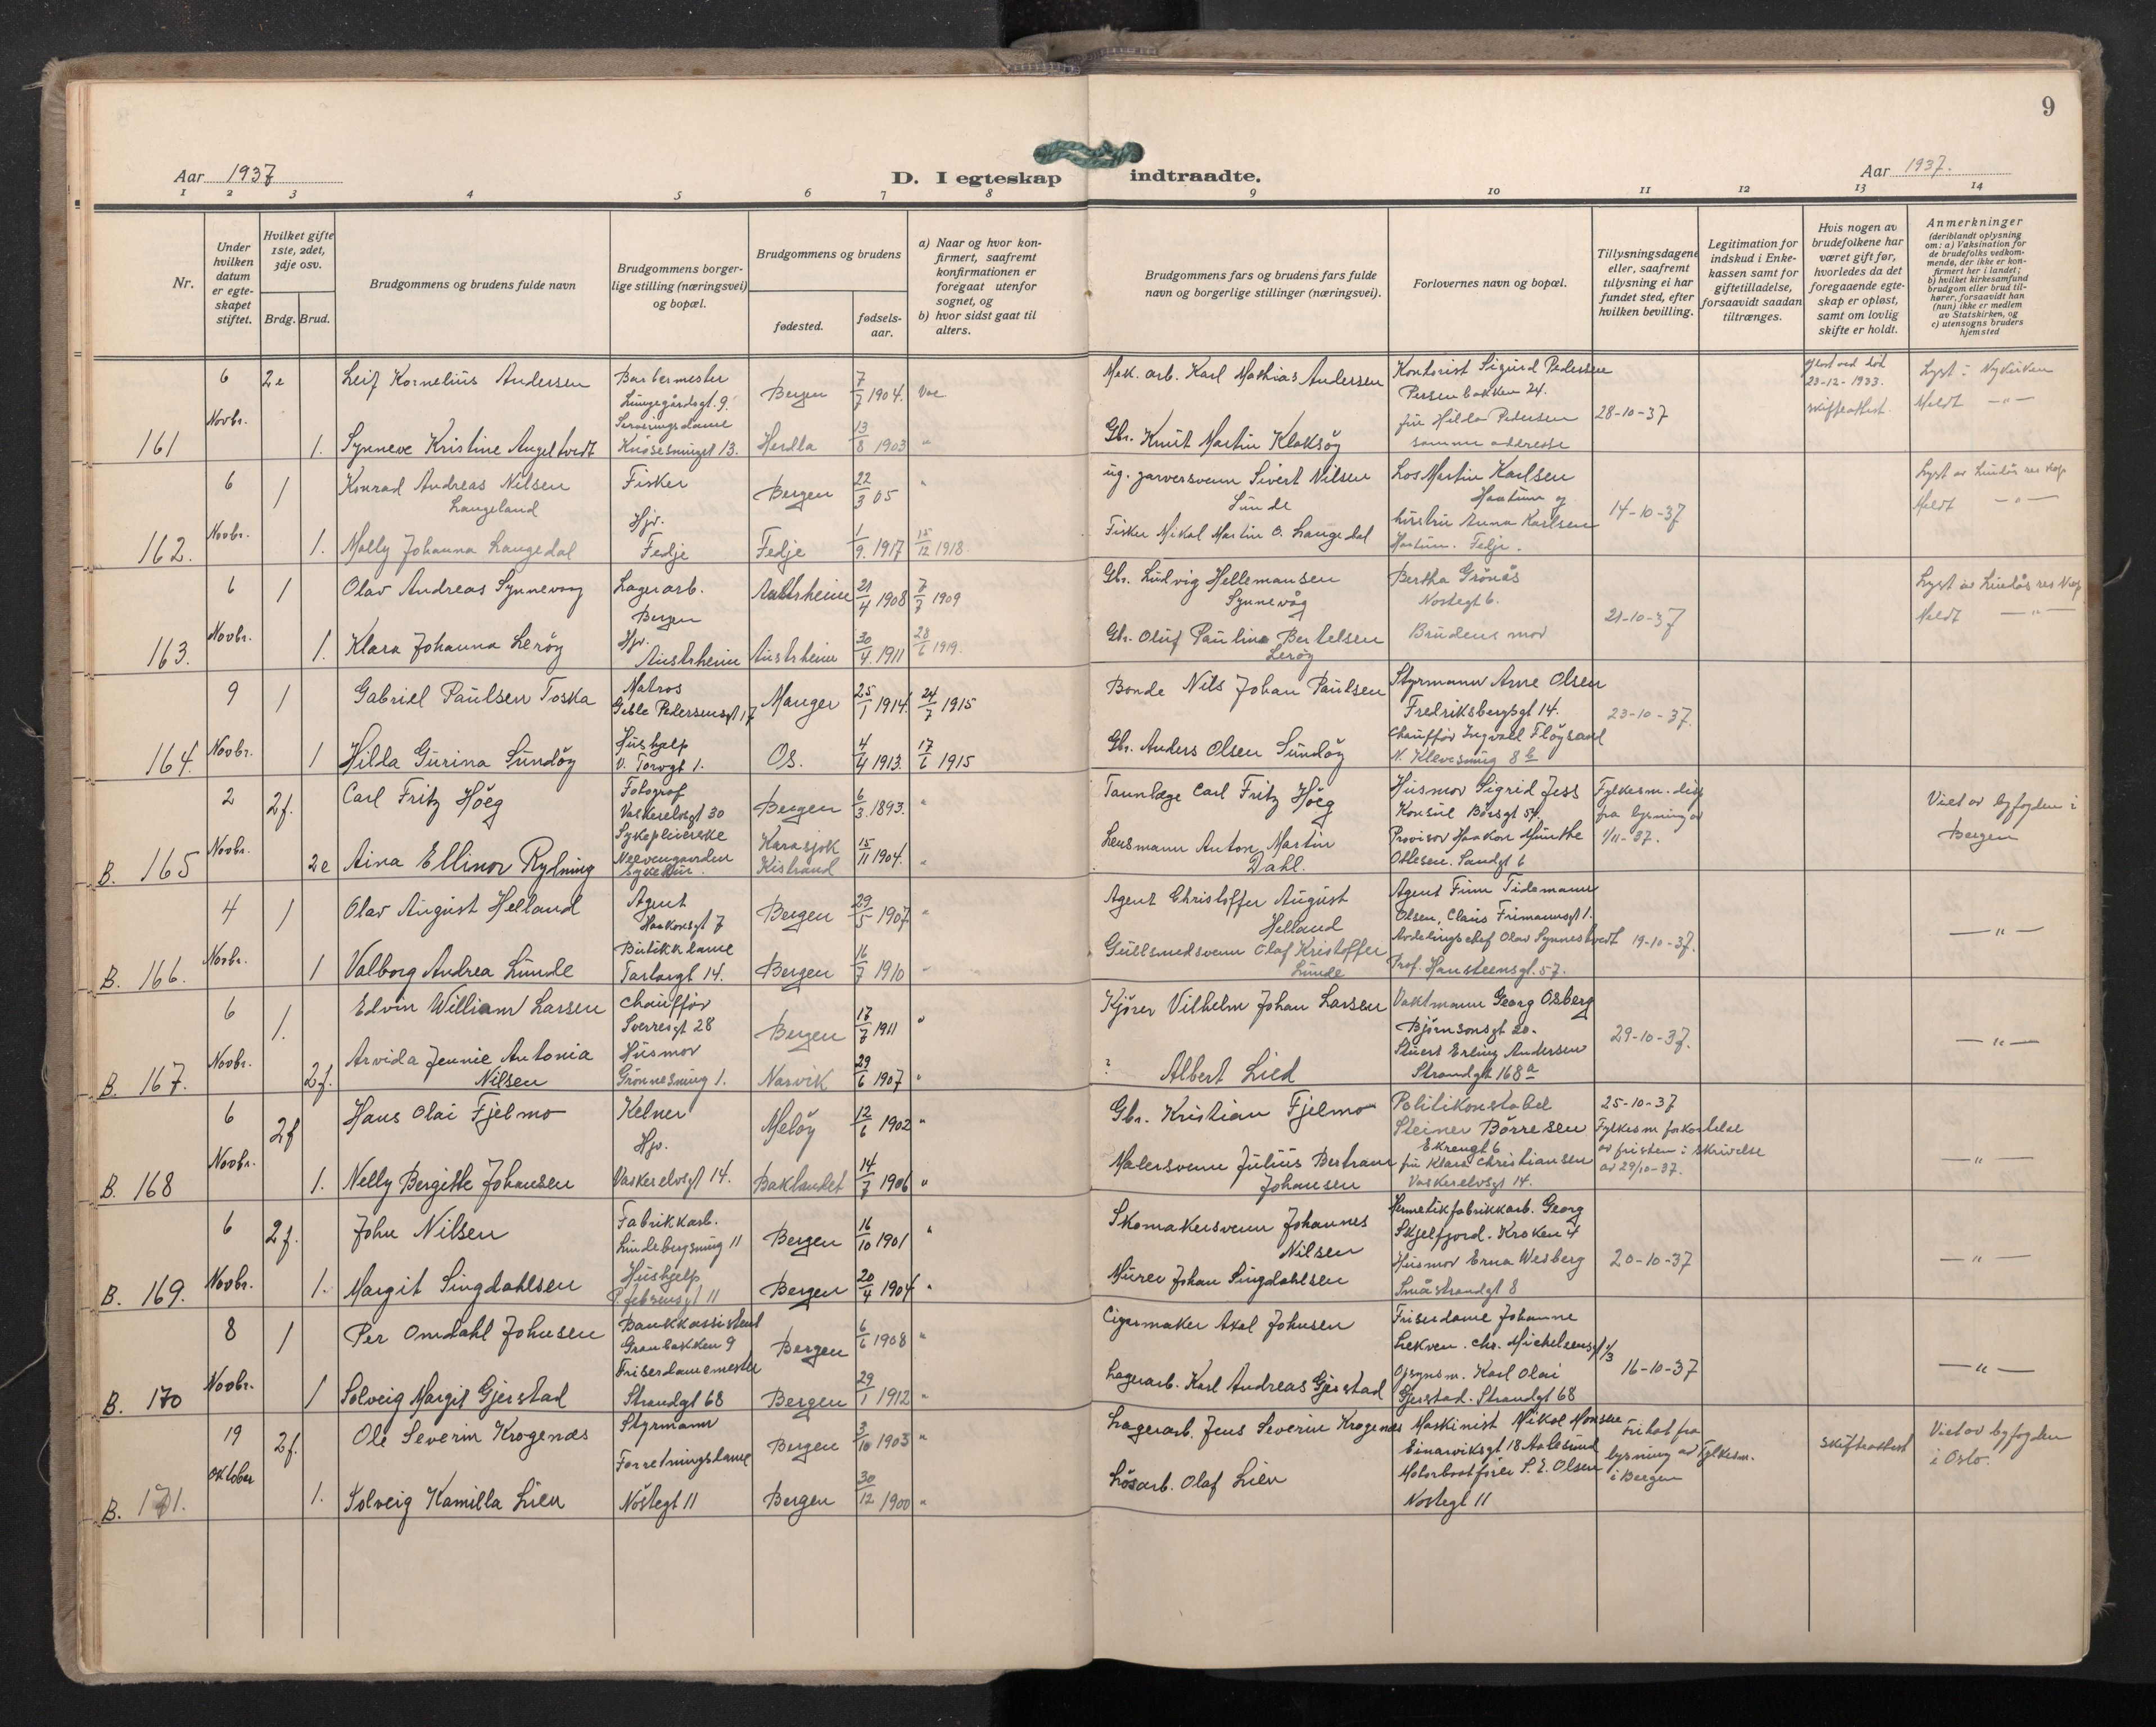 9
Aar 1937
D. I egteskap indtraadte.
Aar 1937.
1 2 3 4 5 6 7 8 9 10 11 12 13 14
Nr.
Under hvilken datum er egteskapet stiftet.
Hvilket gifte 1ste, 2det, 3dje osv.
Brdg. Brud.
Brudgommens og brudens fulde navn
Brudgommens borgerlige stilling (næringsvei) og bopæl.
Brudgommens og brudens
fødested.
fødselsaar.
a) Naar og hvor konfirmert, saafremt konfirmationen er foregaat utenfor sognet, og
b) hvor sidst gaat til alters.
Brudgommens fars og brudens fars fulde navn og borgerlige stillinger (næringsvei).
Forlovernes navn og bopæl.
Tillysningsdagene eller, saafremt tillysning ei har fundet sted, efter hvilken bevilling.
Legitimation for indskud i Enkekassen samt for giftetilladelse, forsaavidt saadan tiltrænges.
Hvis nogen av brudefolkene har været gift før, hvorledes da det foregaaende egteskap er opløst, samt om lovlig skifte er holdt.
Anmerkninger
(deriblandt oplysning om: a) Vaksination for de brudefolks vedkommende, der ikke er konfirmert her i landet; b) hvilket kirkesamfund brudgom eller brud tilhører, forsaavidt han (hun) ikke er medlem av Statskirken, og c) utensogns bruders hjemsted
161
6 Novbr. 2e
Leif Kornelius Andersen
Barbermester
Lungegårdsgt. 9.
Bergen 7/7 1904.
Mek. arb. Karl Mathias Andersen
Kontorist Sigurd Pedersen
Persenbakken 24.
28-10-37
23-12-1933.
skifteattest.
Lyst i Nykirken
Meldt —"—
1. Synneve Kristine Angeltvedt
Serveringsdame
Knøsesmuget 13.
Herdla 13/8 1903 "
Gbr. Knut Martin Klaksøy
fru Hilda Pedersen
samme addresse
162.
6 Novbr. 1
Konrad Andreas Nilsen
Langeland
Fisker
Bergen 22/3 05 "
ug. garversvenn Sivert Nilsen
Lunde
Los Martin Karlsen
14-10-37
Lyst av Lindås res kap
Meldt —"—
1. Molly Johanna Langedal
Hjv.
Fedje
Fedje 1/9. 1917 15/12 1918.
Fisker Mikal Martin O. Langedal
Anna Karlsen
163.
6 Novbr. 1
Olav Andreas Synnevaag
Lagerarb.
Bergen
Austrheim 21/4 1908 7/7 1909
Gbr. Ludvig Hellemansen
Synnevåg
Bertha Grönås
Nostegt 6.
21-10-37
Lyst av Lindås res kap
Meldt —"—
1. Klara Johanna Lerøy
Hjv.
Austrheim
Austrheim 30/4. 1911 28/6 1919.
Gbr. Oluf Paulinus Bertelsen
Lerøy
Brudens mor
164.
9 Novbr. 1
Gabriel Paulsen Toska
Matros
Geble Pedersensgt 17
Manger 25/1 1914. 24/7 1915
Bonde Nils Johan Paulsen
Styrmann Arne Olsen
Fredriksbergsgt 14.
23-10-37.
1 Hilda Gurina Sundöy
Hushjelp
V. Torvgt 1.
Os. 4/4 1913. 17/6 1915
Gbr. Anders Olsen Sundöy
Chauffør Ingvald Fløysand
N. Klevesmug 8b
B. 165
2 Novbr. 2f.
Carl Fritz Höeg
Fotograf
Vaskerelvsgt 30
Bergen 6/3 1893. "
Tannlæge Carl Fritz Höeg
Husmor Sigrid Jess
Konsul Børsgt 54.
Fylkesm. disp
fra lysning av
1/11-37.
Viet av byfogden i
Bergen
2e Aina Ellinor Ryhning
Sykepleierske
Neevengaarden
sykehus.
Karasjok
Kistrand 15/11 1904. "
Lensmann Anton Martin
Dahl.
Provisor Haakon Munthe
Ottesen. Sandgt 6
B. 166.
4 Novbr. 1
Olav August Helland
Agent
Haakonsgt 7
Bergen 29/5 1907 "
Agent Christoffer August
Helland
Agent Finn Tidemann
Olsen, Claus Frimannsgt 1.
19-10-37.
—"—
1 Valborg Andrea Lunde
Butikkdame
Tartargt 14.
Bergen 16/7 1910 "
Gullsmedsvenn Olaf Kristoffer
Lunde
Avdelingschef Olav Synnestvedt
Prof. Hansteensgt. 57.
B. 167.
6 Novbr. 1.
Edvin William Larsen
Chauffør
Sverresgt 28
Bergen 17/7 1911 "
Kjører Vilhelm Johan Larsen
Vaktmann Georg Osberg
Bjørnsonsgt 20.
29-10-37.
—"—
2f. Arvida Jennie Antonia
Nilsen
Husmor
Grønnesmug 1.
Narvik 29/6 1907 "
? Albert Lied
Stuert Erling Andersen
Strandgt 168a
B. 168
6 Novbr. 2f
Hans Olai Fjelmo
Kelner
Meløy 12/6 1902 "
Gbr. Kristian Fjelmo
Politikonstabel
Steiner Børresen
Ekrengt 6
25-10-37
Fylkesm forkortelse
av fristen i skrivelse
av 29/10-37.
—"—
1. Nelly Bergitte Johansen
Hjv.
Vaskerelvsgt 14.
Baklandet 14/7 1906 "
Malersvenn Julius Bertram
Johansen
fru Klara Christiansen
Vaskerelvsgt 14.
B. 169.
6 Novbr. 2f.
John Nilsen
Fabrikkarb.
Lindebergsmug 11
Bergen 16/10 1901 "
Skomakersvenn Johannes
Nilsen
Hermetikfabrikkarb. Georg
Skjelfjord. Kroken 4
20-10-37
—"—
1. Margit Singdahlsen
Hushjelp
Bergen 20/4 1904 "
Murer Johan Singdahlsen
Husmor Erna Wesberg
Småstrandgt 8
B. 170
8 Novbr. 1
Per Omdahl Johnsen
Bankkassistent
Granbakken 9
Bergen 6/6 1908 "
Cigarmaker Axel Johnsen
Friserdame Johanne
Lekven. Chr. Michelsensgt 1/3
16-10-37
—"—
1 Solveig Margit Gjerstad
Friserdamemester
Strandgt 68
Bergen 29/1 1912 "
Lagerarb. Karl Andreas Gjerstad
Opsynsm. Karl Olai
Gjerstad. Strandgt 68
B. 171.
19 Oktober 2f.
Ole Severin Krogenæs
Styrmann
Bergen 3/10 1903 "
Lagerarb. Jens Severin Krogenæs
Maskinist Nikol Monsen
Einarviksgt 18 Aalesund
Fritat fra
lysning av Fylkesm.
i Bergen
Skifteattest
Viet av byfogden
i Oslo.
1. Solveig Kamilla Lien
Forretningsdame
Nøstegt 11
Bergen 30/12 1900 "
Løsarb. Olaf Lien
Motorbaatfører P. E. Olsen
Nøstegt 11